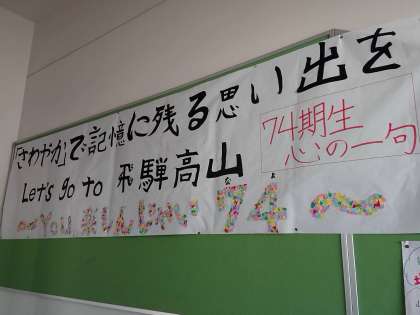 「さわやか」で記憶に残る思い出を
Let's go to 飛騨高山
〜You 楽しんじゃい 74〜
なよ
74期生
心の一句